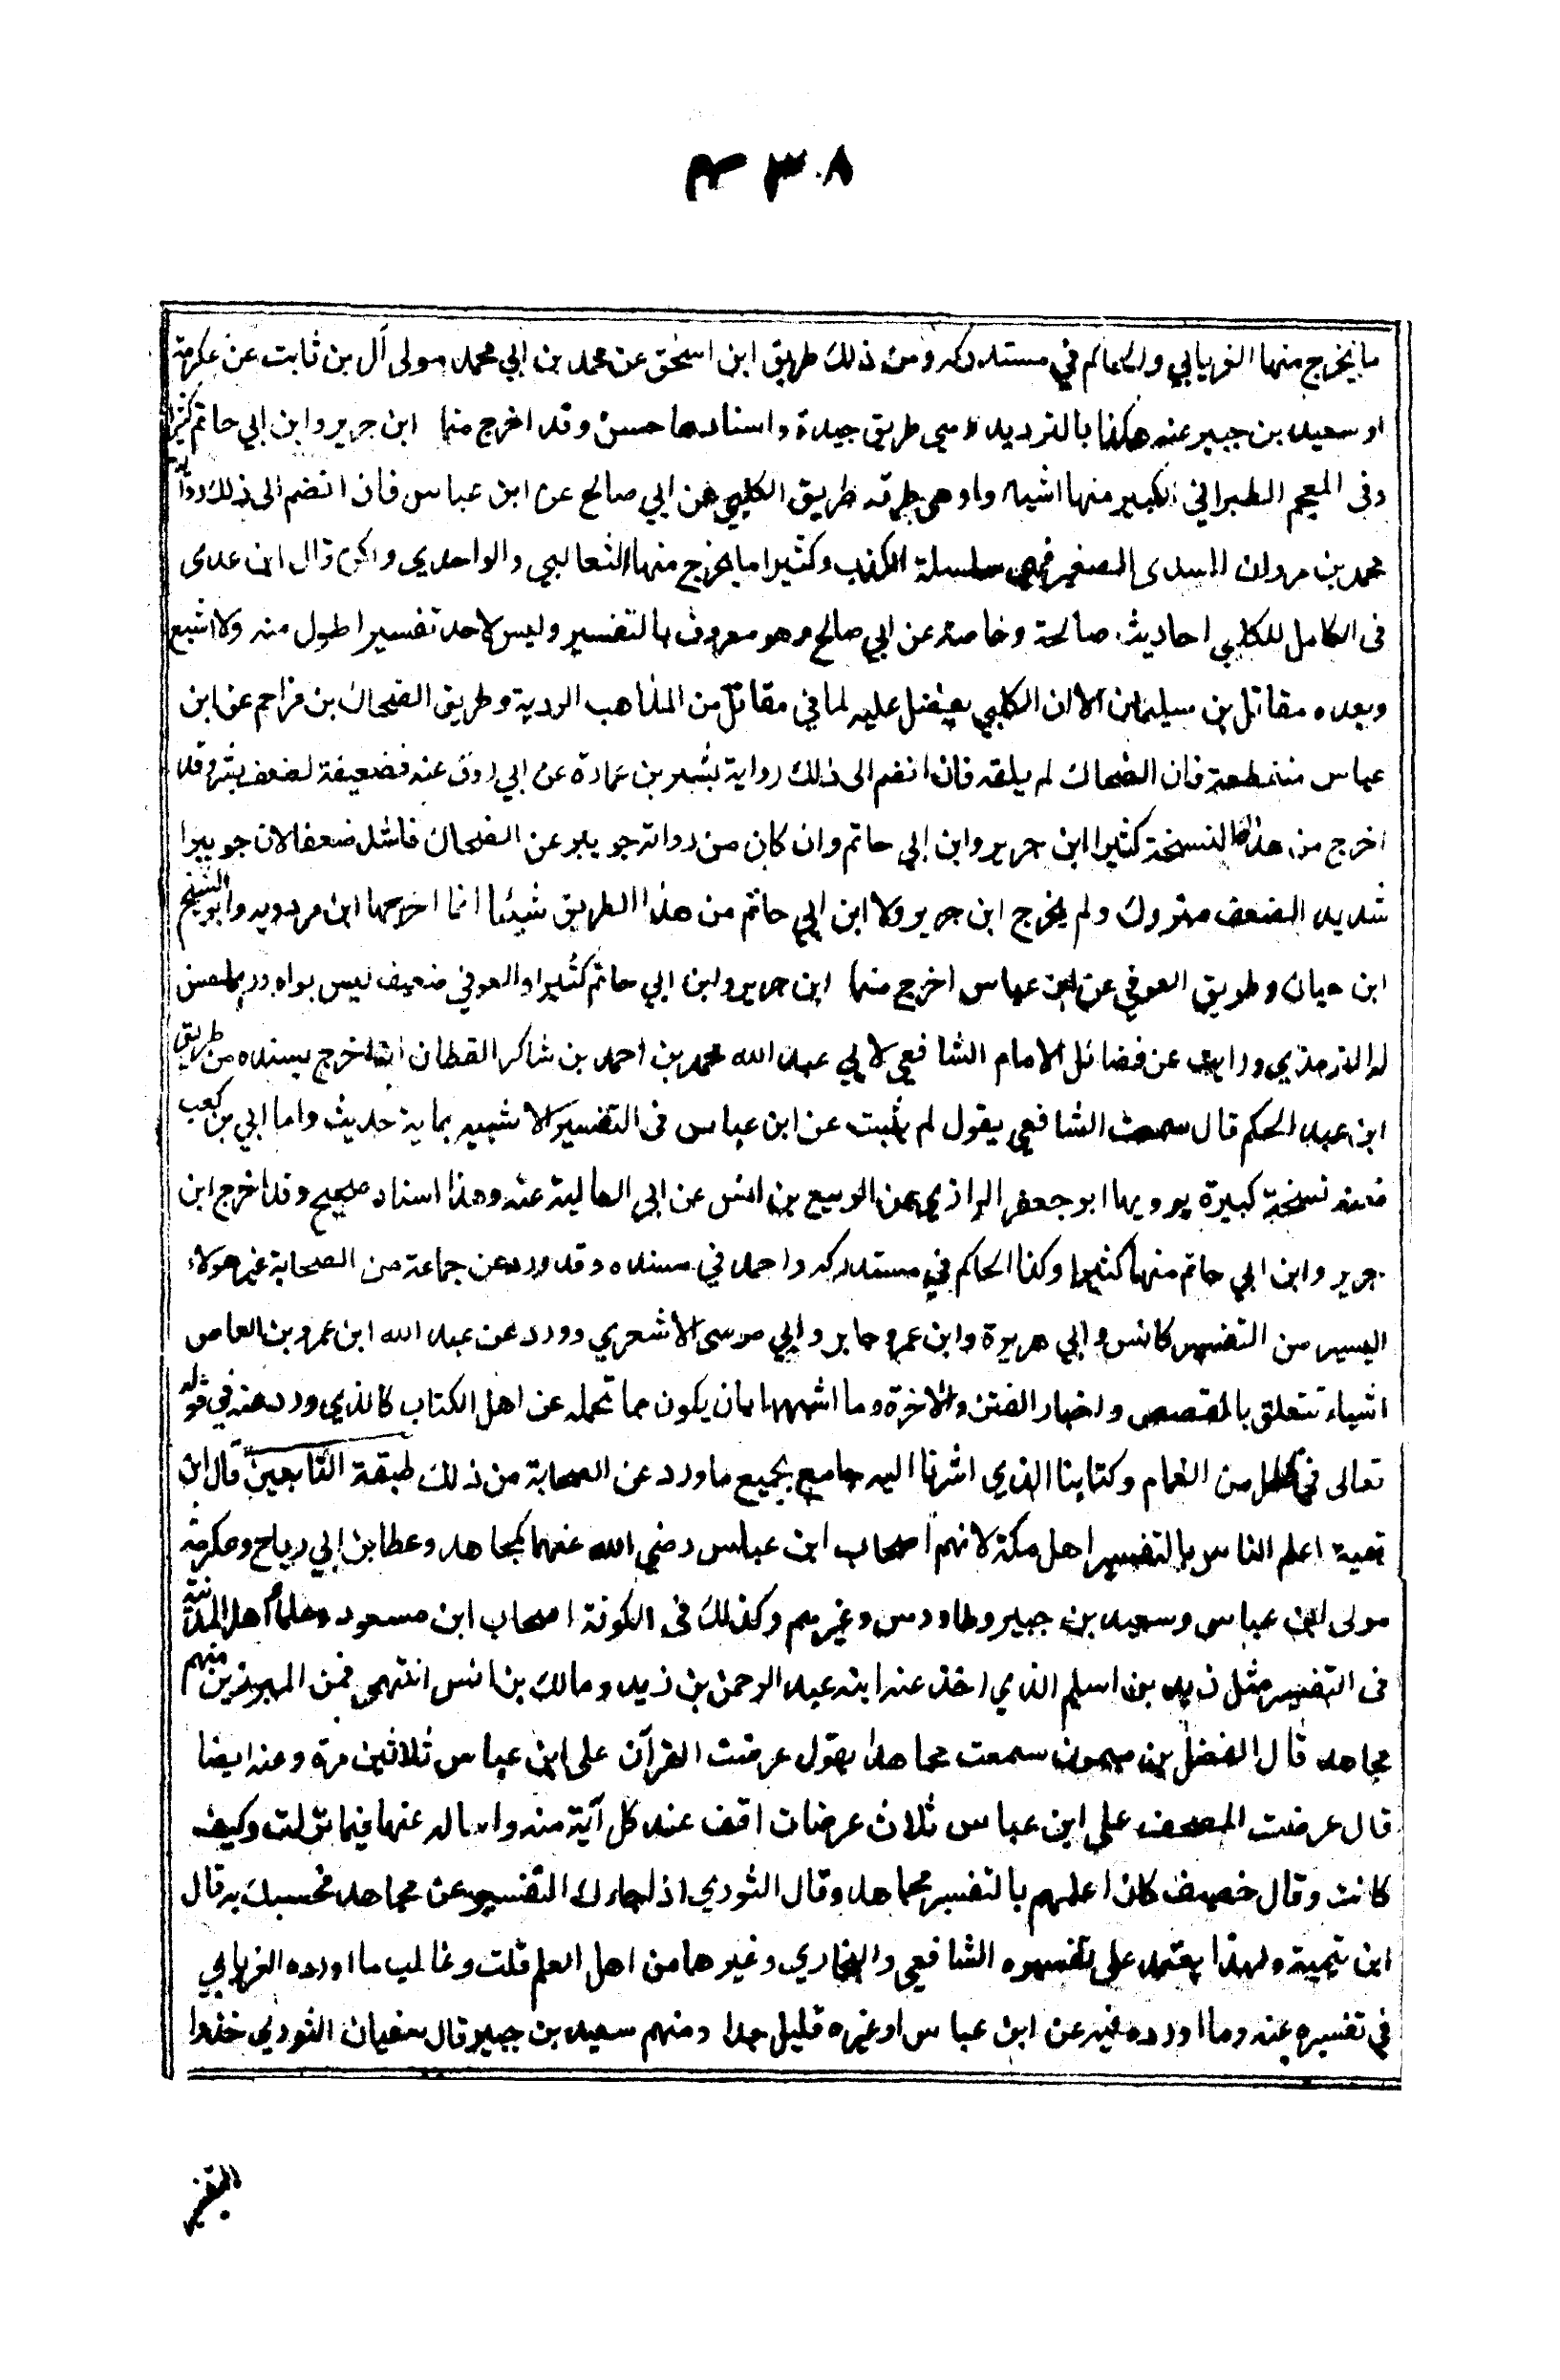 ٨٣٨
ما يخرج منها الفريابي والحاكم في مستدركه ومن ذلك طريق ابن اسحق عن محمد بن ابي محمد مولى آل بن ثابت عن عكرمة
او سعيد بن جبير عنه هكذا بالترديد وهي طريق جيدة واسنادها حسن وقد اخرج منها ابن جرير وابن ابي حاتم كثيرا
وفى المعجم الطبراني الكبير منها اشياء واوهى طرقه طريق الكلبي عن ابي صالح عن ابن عباس فان انضم الى ذلك رواية
محمد بن مروان السدى الصغير فهي سلسلة الكذب وكثيرا ما يخرج منها الثعالبي والواحدي ولكن قال ابن عدى
فى الكامل للكلبي احاديث صالحة وخاصة عن ابي صالح وهو معروف بالتفسير وليس لاحد تفسير اطول منه ولا اشبع
وبعده مقاتل بن سيلمان الا ان الكلبي يفضل عليه لما في مقاتل من المذاهب الردية وطريق الضحاك بن مزاحم عن ابن
عباس منقطعة فان الضحاك لم يلقه فان انضم الى ذلك رواية بشر بن عمارة عن ابي روق عنه فضعيفة لضعف بشر وقد
اخرج من هذه النسخة كثيرا ابن جرير وابن ابي حاتم وان كان من رواة جويبر عن الضحاك فاشد ضعفا لان جويبرا
شديد الضعف متروك ولم يخرج ابن جرير ولا ابن ابي حاتم من هذا الطريق شيئا انما اخرجها ابن مردويه وابو الشيخ
ابن حيان وطريق العوفي عن ابن عباس اخرج منها ابن جرير وابن ابي حاتم كثيرا والعوفي ضعيف ليس بواه وربما حسن
له الترمذي ورايت عن فضائل الامام الشافعي لابي عبد الله محمد بن احمد بن شاكر القطان انه اخرج بسنده من طريق
ابن عبد الحكم قال سمعت الشافعي يقول لم يثبت عن ابن عباس فى التفسير الا شبيه بماية حديث واما ابي بن كعب
فعنه نسخة كبيرة يرويها ابو جعفر الرازي عن الربيع بن انس عن ابي العالية عنه وهذا اسناد صحيح وقد اخرج ابن
جرير وابن ابي حاتم منها كثيرا وكذا الحاكم في مستدركه واحمد في مسنده وقد ورد عن جماعة من الصحابة غير هولاء
اليسير من التفسير كانس وابي هريرة وابن عمر وجابر وابي موسى الاشعري وورد عن عبد الله ابن عمرو بن العاص
اشياء تتعلق بالقصص واخبار الفتن والاخرة وما اشبهها بان يكون مما تحمله عن اهل الكتاب كالذي ورد عنه في قوله
تعالى في ظلل من الغمام وكتابنا الذي اشرنا اليه جامع لجميع ما ورد عن الصحابة من ذلك طبقة التابعين قال ابن
تمية اعلم الناس بالتفسير اهل مكة لانهم اصحاب ابن عباس رضي الله عنهما كمجاهد وعطا بن ابي رباح وعكرمة
مولى ابن عباس وسعيد بن جبير وطاووس وغيرهم وكذلك فى الكوفة اصحاب ابن مسعود وعلماء اهل المدينة
فى التفسير مثل زيد بن اسلم الذي اخذ عنه ابنه عبد الرحمن بن زيد ومالك بن انس انتهى فمن المبرزين منهم
مجاهد قال الفضل بن ميمون سمعت مجاهدا يقول عرضت القرآن على ابن عباس ثلاثين مرة وعنه ايضا
قال عرضت المصحف على ابن عباس ثلاث عرضات اقف عند كل آية منه واساله عنها فيما نزلت وكيف
كانت وقال خصيف كان اعلمهم بالتفسير مجاهد وقال الثوري اذا جاءك التفسير عن مجاهد فحسبك به قال
ابن تيمية ولهذا يعتمد على تفسيره الشافعي والبخاري وغيرهما من اهل العلم قلت وغالب ما اورده الفريابي
في تفسيره عنه وما اورده فيه عن ابن عباس او غيره قليل جدا ومنهم سعيد بن جبير قال سفيان الثوري خذوا
التفسير